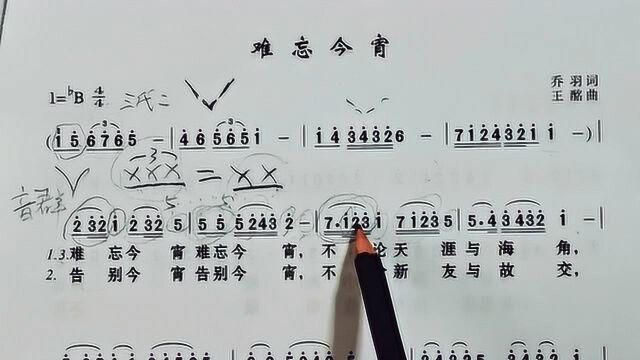 难忘今宵
1=♭B 4/4 三代二
乔羽词
王酩曲
(i 5 6 7 6 5 - | 4 6 5 6 5 i - | i 4 3 4 3 2 6 - | 7 i 2 4 3 2 i i -)|
3
X X X = X X
音群
2 3 2 i 2 3 2 5 | 5 5 5 2 4 3 2 - | 7. i 2 3 i 7 i 2 3 5 | 5. 4 3 4 3 2 i - |
1.3. 难 忘今 宵 难忘今 宵, 不 论天 涯与海 角,
2. 告 别今 宵 告别今 宵, 不 新 友与故 交,